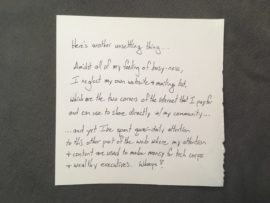 Here's another unsettling thing...
Amidst all of my feeling of busy-ness,
I neglect my own website + mailing list,
which are the two corners of the internet that I pay for
and can use to share directly w/ my community...
...and yet I've spent quasi-daily attention
to this other part of the web where my attention
+ content are used to make money for tech corps
+ wealthy executives. Whoops?